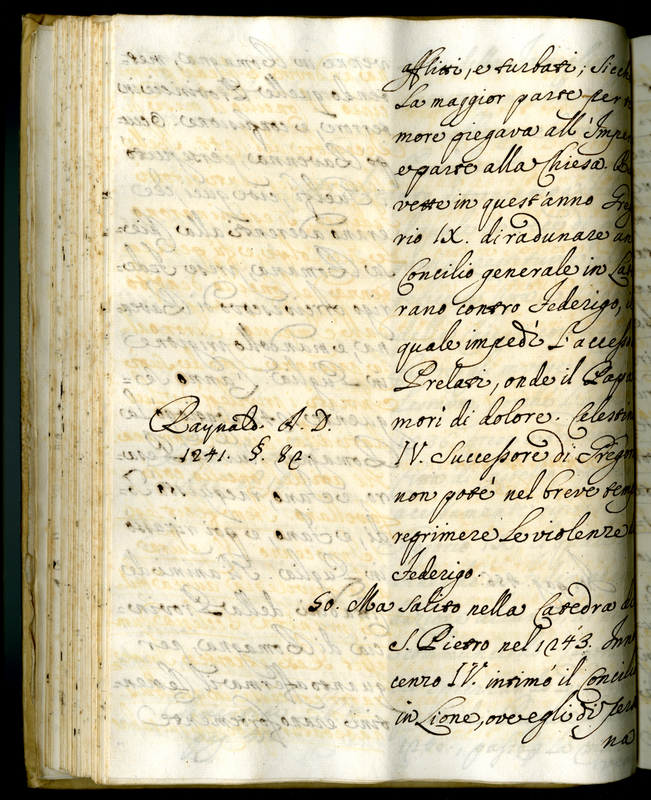 afflitti, e turbati; Sicch
La maggior parte per ti
more piegava all' Imper
e parte alla Chiesa.
vette in quest'anno Greg
rio IX. di radunare un
Concilio generale in Lat
rano contro Federigo, il
quale impedì L'accesso
Prelati, onde il Papa
morì di dolore. Celestin
IV. Successore di Gregor
non potè nel breve temp
reprimere Le violenze
Federigo.
Raynald. A. D.
1241. §. 82.
50. Ma Salito nella Catedra di
S. Pietro nel 1243. Inno
cenzo IV. intimò il Concilio
in Lione, ove egli di
na